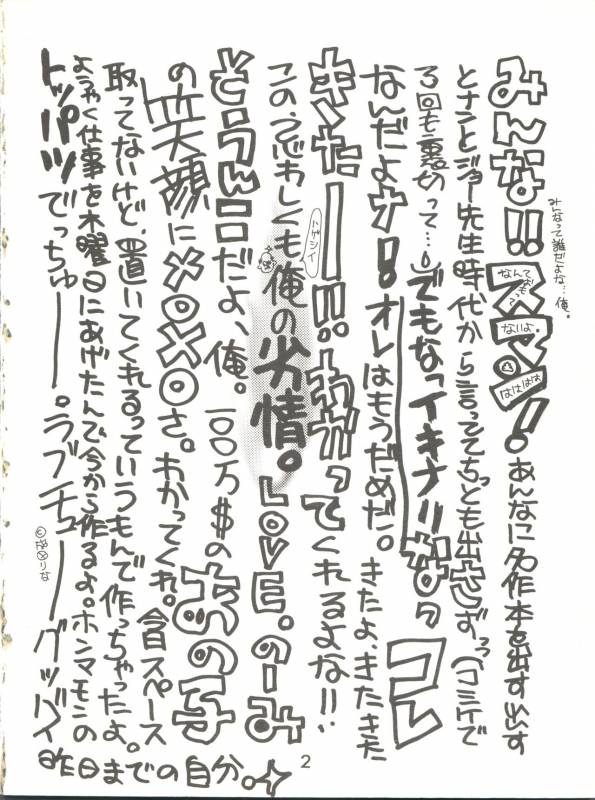 みんな!!スマン!あんなに名作本を出す出す
みんなって誰だよな…俺。
なんておもってないよ。
ははははは
とナンとジョー先生時代から言っててちっとも出さずっっ(コミケで
3回も裏切って…)でもなっイキナリなのっコレ
なんだよナ!オレはもうだめだ。きたよ、きたきた
きたーー!!わかってくれるよな!!
ハゲシイ
この、忌わしくも俺の劣情。LOVE。のーみ
そうんこだよ、俺。一〇〇万$のあの子
の笑顔にメロメロさ。わかってくれ。今日スペース
取ってないけど、置いてくれるっていうもんで作っちゃったよ。
ようやく仕事を木曜日にあげたんで今から作るよ。ホンマモンの
トッパツでっちゅーー。ラブチューーグッバイ
昨日までの自分。
2